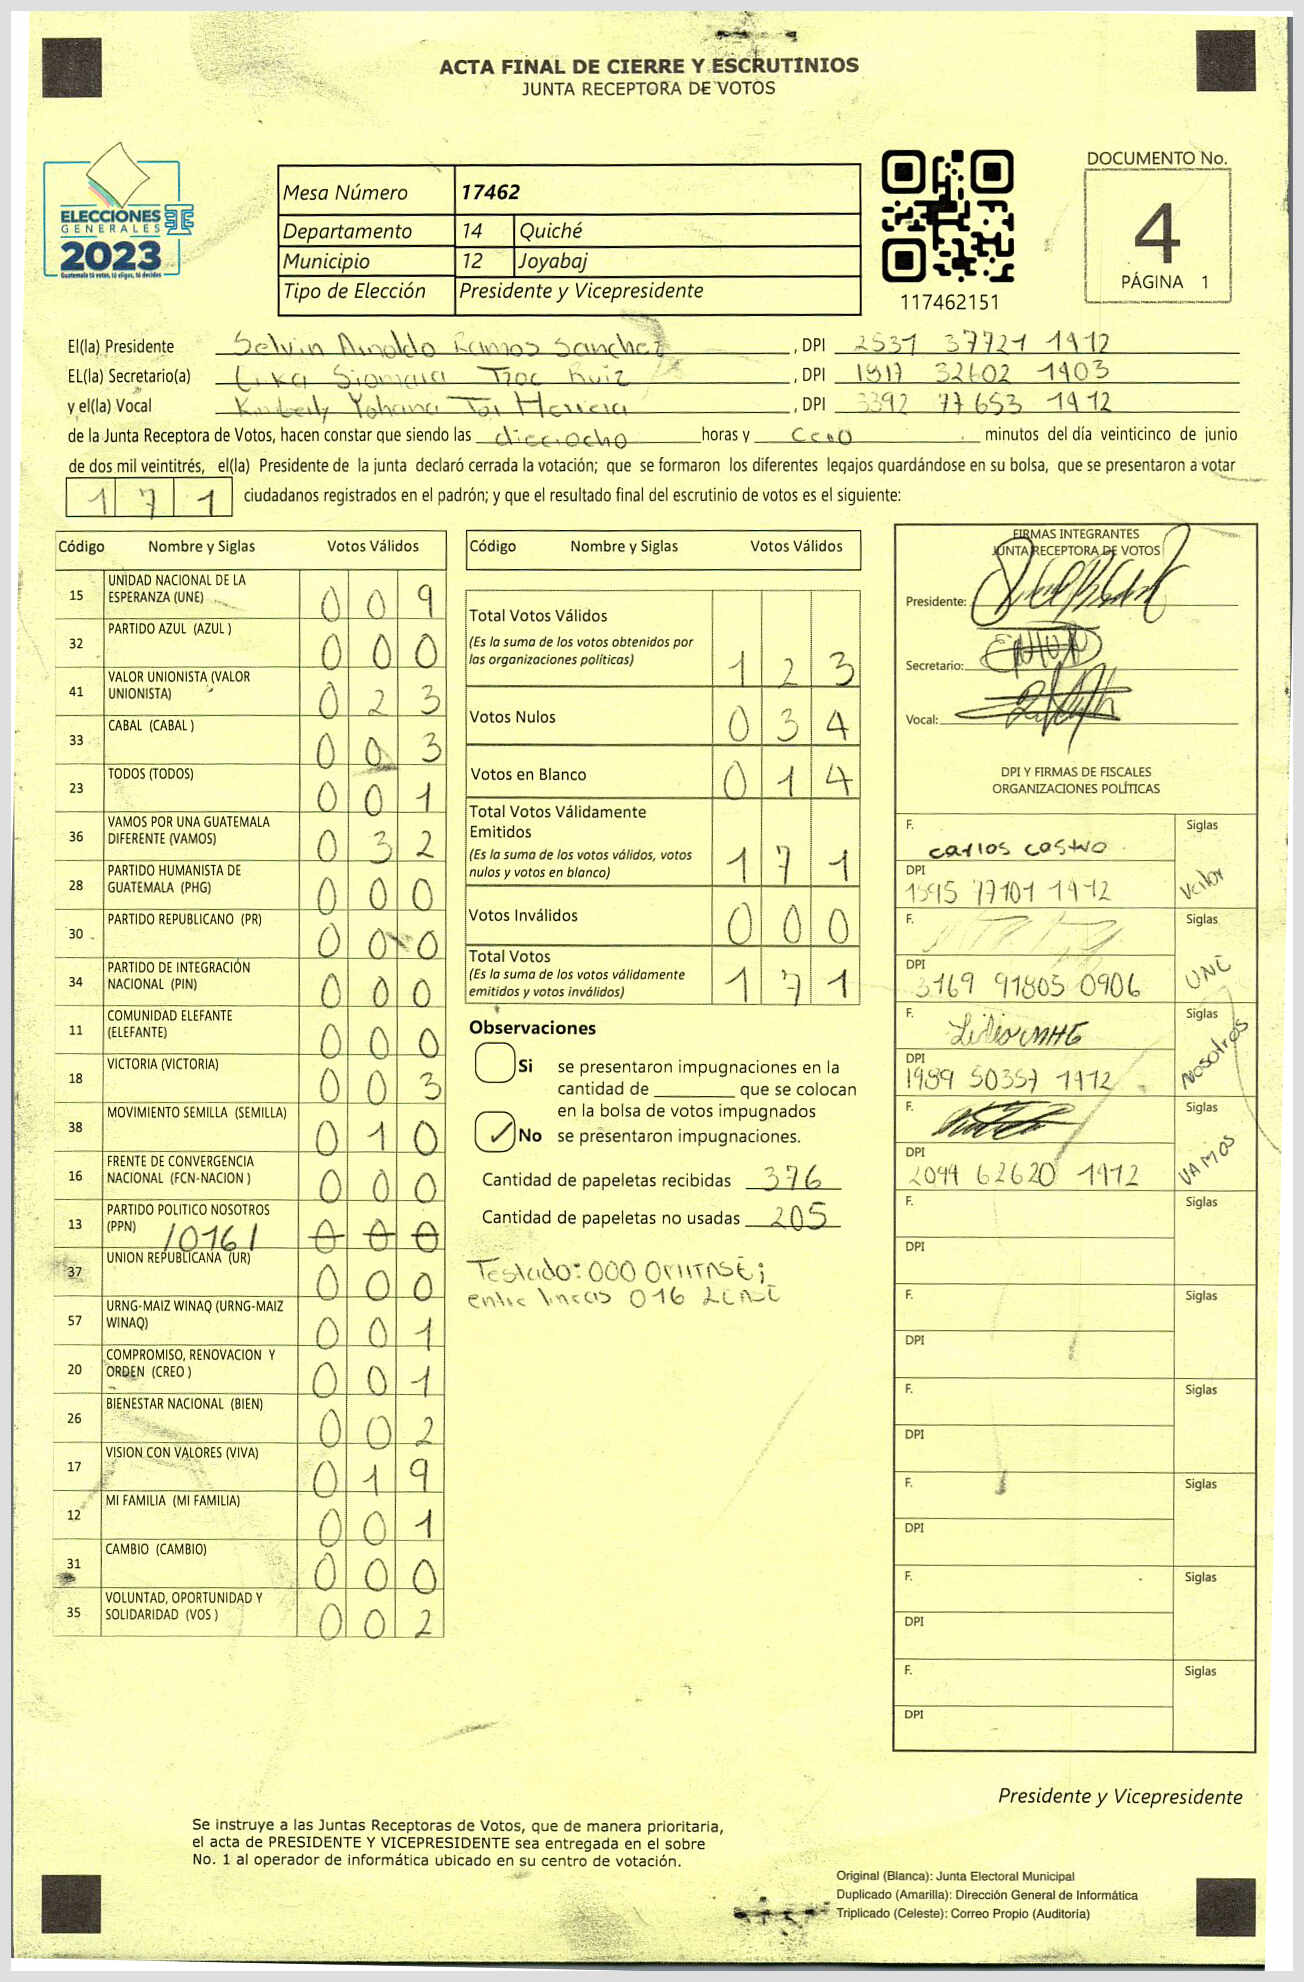 ACTA FINAL DE CIERRE Y ESCRUTINIOS
JUNTA RECEPTORA DE VOTOS
ELECCIONES
GENERALES
2023
Guatemala tú votas, tú eliges, tú decides
Mesa Número 17462
Departamento 14 Quiché
Municipio 12 Joyabaj
Tipo de Elección Presidente y Vicepresidente
117462151
DOCUMENTO No.
4
PÁGINA 1
El(la) Presidente Selvin Arnoldo Ramos Sanchez, DPI 2531 37721 1412
EL(la) Secretario(a) Siomara Ruiz, DPI 1917 32602 1403
y el(la) Vocal Kimberly Yohana Herrera, DPI 3392 77653 1412
de la Junta Receptora de Votos, hacen constar que siendo las dieciocho horas y cero minutos del día veinticinco de junio
de dos mil veintitrés, el(la) Presidente de la junta declaró cerrada la votación; que se formaron los diferentes legajos guardándose en su bolsa, que se presentaron a votar
171 ciudadanos registrados en el padrón; y que el resultado final del escrutinio de votos es el siguiente:
Código Nombre y Siglas Votos Válidos
15 UNIDAD NACIONAL DE LA ESPERANZA (UNE) 009
32 PARTIDO AZUL (AZUL ) 000
41 VALOR UNIONISTA (VALOR UNIONISTA) 023
33 CABAL (CABAL ) 003
23 TODOS (TODOS) 001
36 VAMOS POR UNA GUATEMALA DIFERENTE (VAMOS) 032
28 PARTIDO HUMANISTA DE GUATEMALA (PHG) 000
30 PARTIDO REPUBLICANO (PR) 000
34 PARTIDO DE INTEGRACIÓN NACIONAL (PIN) 000
11 COMUNIDAD ELEFANTE (ELEFANTE) 000
18 VICTORIA (VICTORIA) 003
38 MOVIMIENTO SEMILLA (SEMILLA) 010
16 FRENTE DE CONVERGENCIA NACIONAL (FCN-NACION ) 000
13 PARTIDO POLITICO NOSOTROS (PPN) /016/ 000
37 UNION REPUBLICANA (UR) 000
57 URNG-MAIZ WINAQ (URNG-MAIZ WINAQ) 001
20 COMPROMISO, RENOVACION Y ORDEN (CREO ) 001
26 BIENESTAR NACIONAL (BIEN) 002
17 VISION CON VALORES (VIVA) 019
12 MI FAMILIA (MI FAMILIA) 001
31 CAMBIO (CAMBIO) 000
35 VOLUNTAD, OPORTUNIDAD Y SOLIDARIDAD (VOS ) 002
Código Nombre y Siglas Votos Válidos
Total Votos Válidos
(Es la suma de los votos obtenidos por
las organizaciones políticas) 123
Votos Nulos 034
Votos en Blanco 014
Total Votos Válidamente
Emitidos
(Es la suma de los votos válidos, votos
nulos y votos en blanco) 171
Votos Inválidos 000
Total Votos
(Es la suma de los votos válidamente
emitidos y votos inválidos) 171
Observaciones
Si se presentaron impugnaciones en la
cantidad de ________ que se colocan
en la bolsa de votos impugnados
No se presentaron impugnaciones.
Cantidad de papeletas recibidas 376
Cantidad de papeletas no usadas 205
Testado: 000 OMITASE;
entre lineas 016 LEASE
FIRMAS INTEGRANTES
JUNTA RECEPTORA DE VOTOS
Presidente:
Secretario:
Vocal:
DPI Y FIRMAS DE FISCALES
ORGANIZACIONES POLÍTICAS
F. carlos castro Siglas
DPI 1595 77101 1412 Valor
F. Siglas
DPI 3169 91805 0906 UNE
F. Siglas
DPI 1989 50357 1412 Nosotros
F. Siglas
DPI 2099 62620 1412 VAMOS
F. Siglas
DPI
F. Siglas
DPI
F. Siglas
DPI
F. Siglas
DPI
F. Siglas
DPI
F. Siglas
DPI
Presidente y Vicepresidente
Se instruye a las Juntas Receptoras de Votos, que de manera prioritaria,
el acta de PRESIDENTE Y VICEPRESIDENTE sea entregada en el sobre
No. 1 al operador de informática ubicado en su centro de votación.
Original (Blanca): Junta Electoral Municipal
Duplicado (Amarilla): Dirección General de Informática
Triplicado (Celeste): Correo Propio (Auditoría)